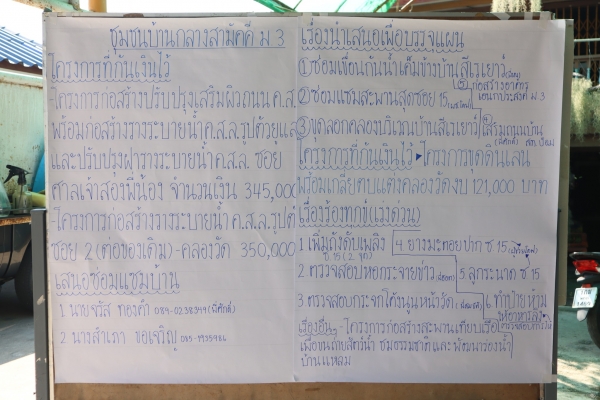 ชุมชนบ้านกลางสามัคคี ม.3
โครงการที่กันเงินไว้
-โครงการก่อสร้างปรับปรุงเสริมผิวถนน ค.ส.ล
พร้อมก่อสร้างรางระบายน้ำ ค.ส.ล.รูปตัวยูและ
และปรับปรุงฝารางระบายน้ำ ค.ส.ล. ซอย
ศาลเจ้าสองพี่น้อง จำนวนเงิน 345,000
-โครงการก่อสร้างรางระบายน้ำ ค.ส.ล.รูปตัว
ซอย 2 (ต่อของเดิม)-คลองวัด 350,000
เสนอซ่อมแซมบ้าน
1 นายจรัส ทองคำ
2 นางสำเภา ขอเจริญ 085-9935986
เรื่องนำเสนอเพื่อบรรจุแผน
①ซ่อมเขื่อนกันน้ำเค็มข้างบ้านสีเรเยาว์
⑤ก่อสร้างอาคาร
เอนกประสงค์ ม 3
②ซ่อมแซมสะพานสุดซอย 15
③ขุดลอกคลองบริเวณบ้านสีเรเยาว์
④เสริมถนนบ้าน
โครงการที่กันเงินไว้ โครงการขุดดินเลน
พร้อมเกลี่ยตบแต่งคลองวัดงบ 121,000 บาท
เรื่องร้องทุกข์(เร่งด่วน)
1 เพิ่มถังดับเพลิง
ซ 15 (2 จุด)
4 ยางมะตอยปาก ซ 15
2 ตรวจสอบหอกระจายข่าว
5 ลูกระนาด ซ 15
3 ตรวจสอบกระจกโค้งนูนหน้าวัด
6 ทำป้ายห้าม
ให้อาหารลิง
เรื่องอื่นๆ -โครงการก่อสร้างสะพานเทียบเรือ
เพื่อขนถ่ายสัตว์น้ำ ชมธรรมชาติ และพัฒนาร่องน้ำ
บ้านแหลม